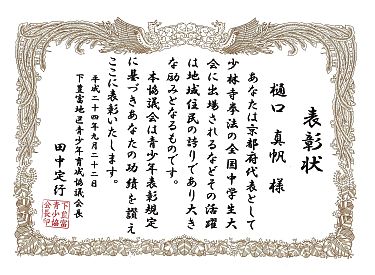 表彰状
樋口 真帆 様
あなたは京都府代表として
少林寺拳法の全国中学生大
会に出場されるなどその活躍
は地域住民の誇りであり大き
な励みとなるものです。
本協議会は青少年表彰規定
に基づきあなたの功績を讃え
ここに表彰いたします。
平成二十四年九月二十二日
下豊富地区青少年育成協議会長
田中定行
下豊富
青少協
会長印